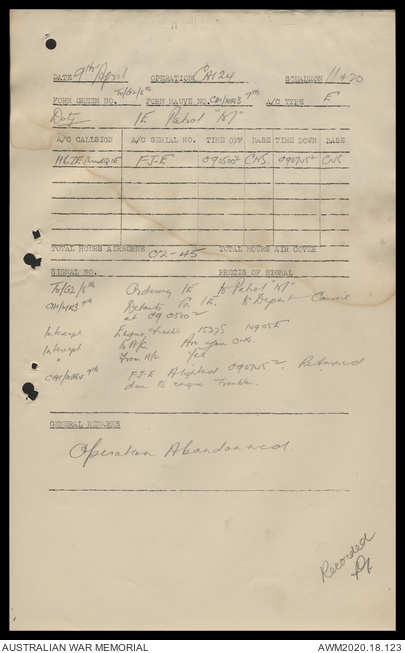 DATE 9th/April OPERATION CA124 SQUADRON 11 & 20
FORM GREEN NO. To/G2/8th FORM MAUVE NO. CAI/MR3 9th A/C TYPE E
Duty 1E Patrol "M"
A/C CALLSIGN A/C SERIAL NO. TIME OFF BASE TIME DOWN BASE
FJ-E 090500Z CNS. 090745Z CNS
TOTAL HOURS AIRBORNE 02-45 TOTAL HOURS AIR COVER
SIGNAL NO. PRECIS OF SIGNAL
To/G2/8th Ordering 1E to Patrol "M"
CAI/MR3 9th Details for 1E. to Depart Cairns
at 090500Z
Intercept Engine trouble 1527S 14905E
Intercept to A/C. Are you O.K.
" From A/C Yes
CAI/MRV 9th FJ-E Alighted 090745Z. Returned
due to engine trouble.
GENERAL REMARKS
Operation Abandonned.
Recorded
AUSTRALIAN WAR MEMORIAL AWM2020.18.123